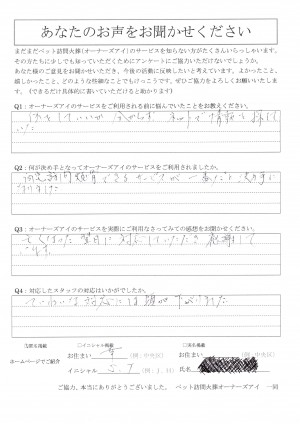 あなたのお声をお聞かせください
まだまだペット訪問火葬(オーナーズアイ)のサービスを知らない方がたくさんいらっしゃいます。
その方たちに少しでも知っていただくためにアンケートにご協力いただけないでしょうか。
あなた様のご意見をお聞かせいただき、今後の活動に反映したいと考えています。よかったこと、
嬉しかったこと、どのような些細なことでもけっこうです。ぜひご協力をよろしくお願いいたします。
(できるだけ具体的に書いていただけると助かります)
Q1：オーナーズアイのサービスをご利用される前に悩んでいたことをお教えください。
Q2：何が決め手となってオーナーズアイのサービスをご利用されましたか。
なりました
Q3：オーナーズアイのサービスを実際にご利用なさってみての感想をお聞かせください。
亡くなった翌日に対応していただき 感謝して
います。
Q4：対応したスタッフの対応はいかがでしたか。
ていねいな対応には頭が下がりました
□イニシャル掲載
□匿名掲載
ホームページでご紹介
お住まい
(例:中央区)
イニシャル S.T (例:J.H)
お住まい
(例:中央区)
氏名
ご協力、本当にありがとうございました。 ペット訪問火葬オーナーズアイ 一同